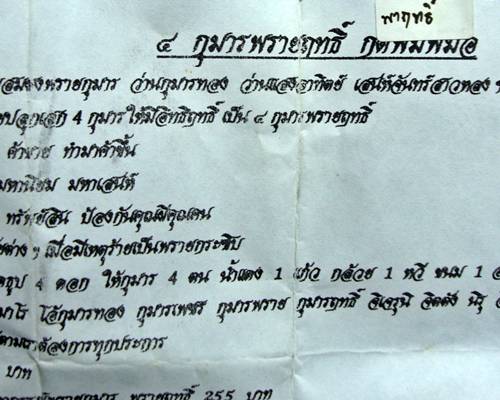 พาฤทธิ์
๔ กุมารพรายฤทธิ์
พรายกุมาร ว่านกุมารทอง ว่านแสงอาทิตย์ เสน่ห์จันทร์สาวทอง
ปลุกเสก 4 กุมารให้มีอิทธิฤทธิ์ เป็น ๔ กุมารพรายฤทธิ์
ค้าขาย ทำมาค้าขึ้น
มหานิยม มหาเสน่ห์
ทรัพย์สิน ป้องกันคุณผีคุณคน
ต่าง ๆ เมื่อมีเหตุร้ายเป็นพรายกระซิบ
ธูป 4 ดอก ให้กุมาร 4 ตน น้ำแดง 1 แก้ว กล้วย 1 หวี ขนม 1
โอ้กุมารทอง กุมารเพชร กุมารพราย กุมารฤทธิ์ จิเจรุนิ จิตตัง นิรุ
ต้องการทุกประการ
บาท
พรายกุมาร พรายฤทธิ์ 255 บาท